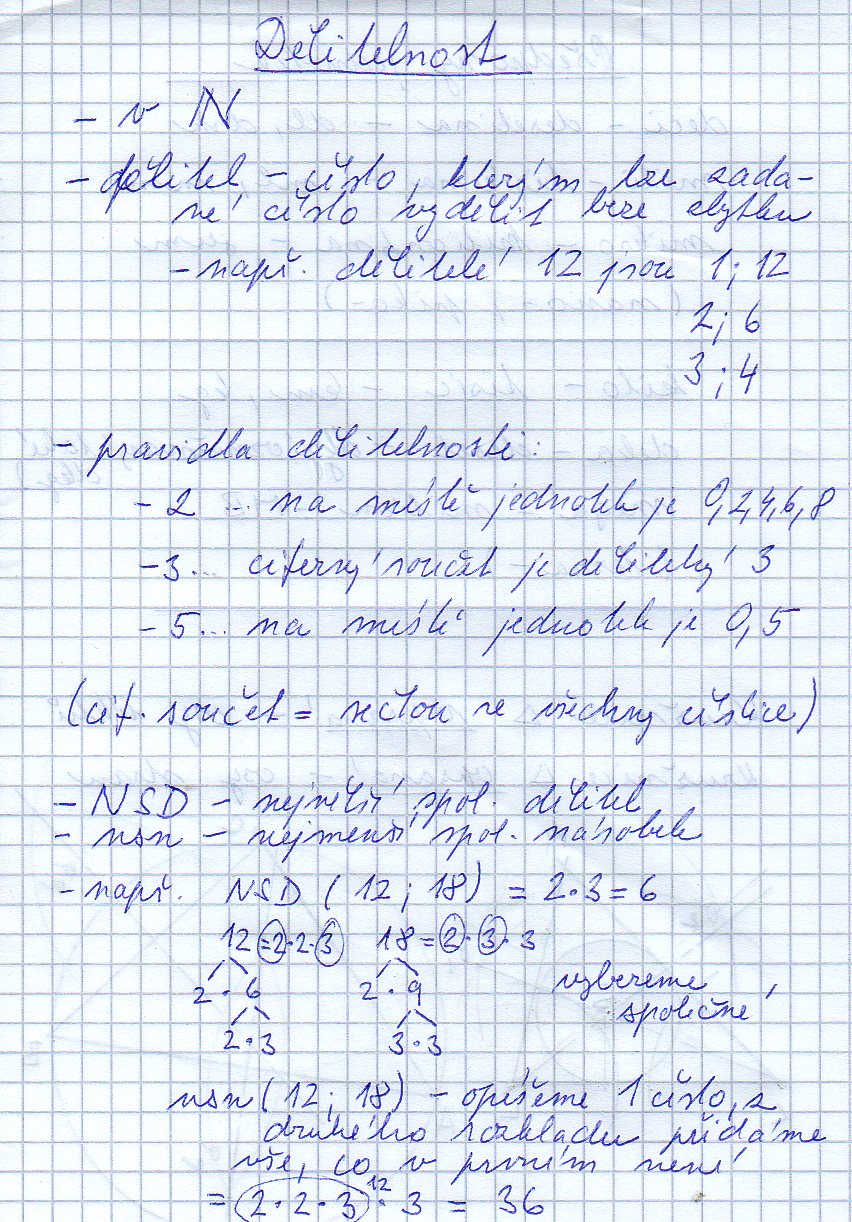 Dělitelnost
- v N
- dělitel - číslo, kterým lze zada-
né číslo vydělit beze zbytku
- např. dělitelé 12 jsou 1; 12
2; 6
3; 4
- pravidla dělitelnosti:
- 2 ... na místě jednotek je 0,2,4,6,8
- 3... ciferný součet je dělitelný 3
- 5... na místě jednotek je 0,5
(cif. součet = sečtou se všechny číslice)
- NSD - největší spol. dělitel
- nsn - nejmenší spol. násobek
- např. NSD (12; 18) = 2·3 = 6
12 = 2·2·3 18 = 2·3·3
2·6 2·9
vybereme
společné
2·3 3·3
nsn (12; 18) - opíšeme 1 číslo, z
druhého rozkladu přidáme
vše, co v prvním není
= 2·2·3 12 · 3 = 36